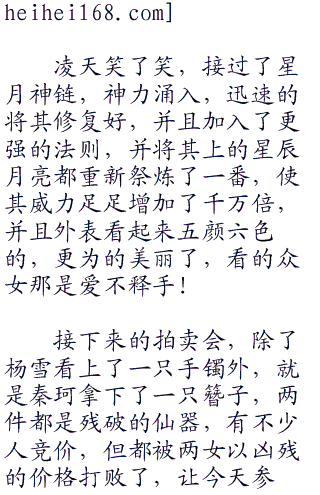 heihei168.com]
凌天笑了笑，接过了星
月神链，神力涌入，迅速的
将其修复好，并且加入了更
强的法则，并将其上的星辰
月亮都重新祭炼了一番，使
其威力足足增加了千万倍，
并且外表看起来五颜六色
的，更为的美丽了，看的众
女那是爱不释手！
接下来的拍卖会，除了
杨雪看上了一只手镯外，就
是秦珂拿下了一只簪子，两
件都是残破的仙器，有不少
人竞价，但都被两女以凶残
的价格打败了，让今天参